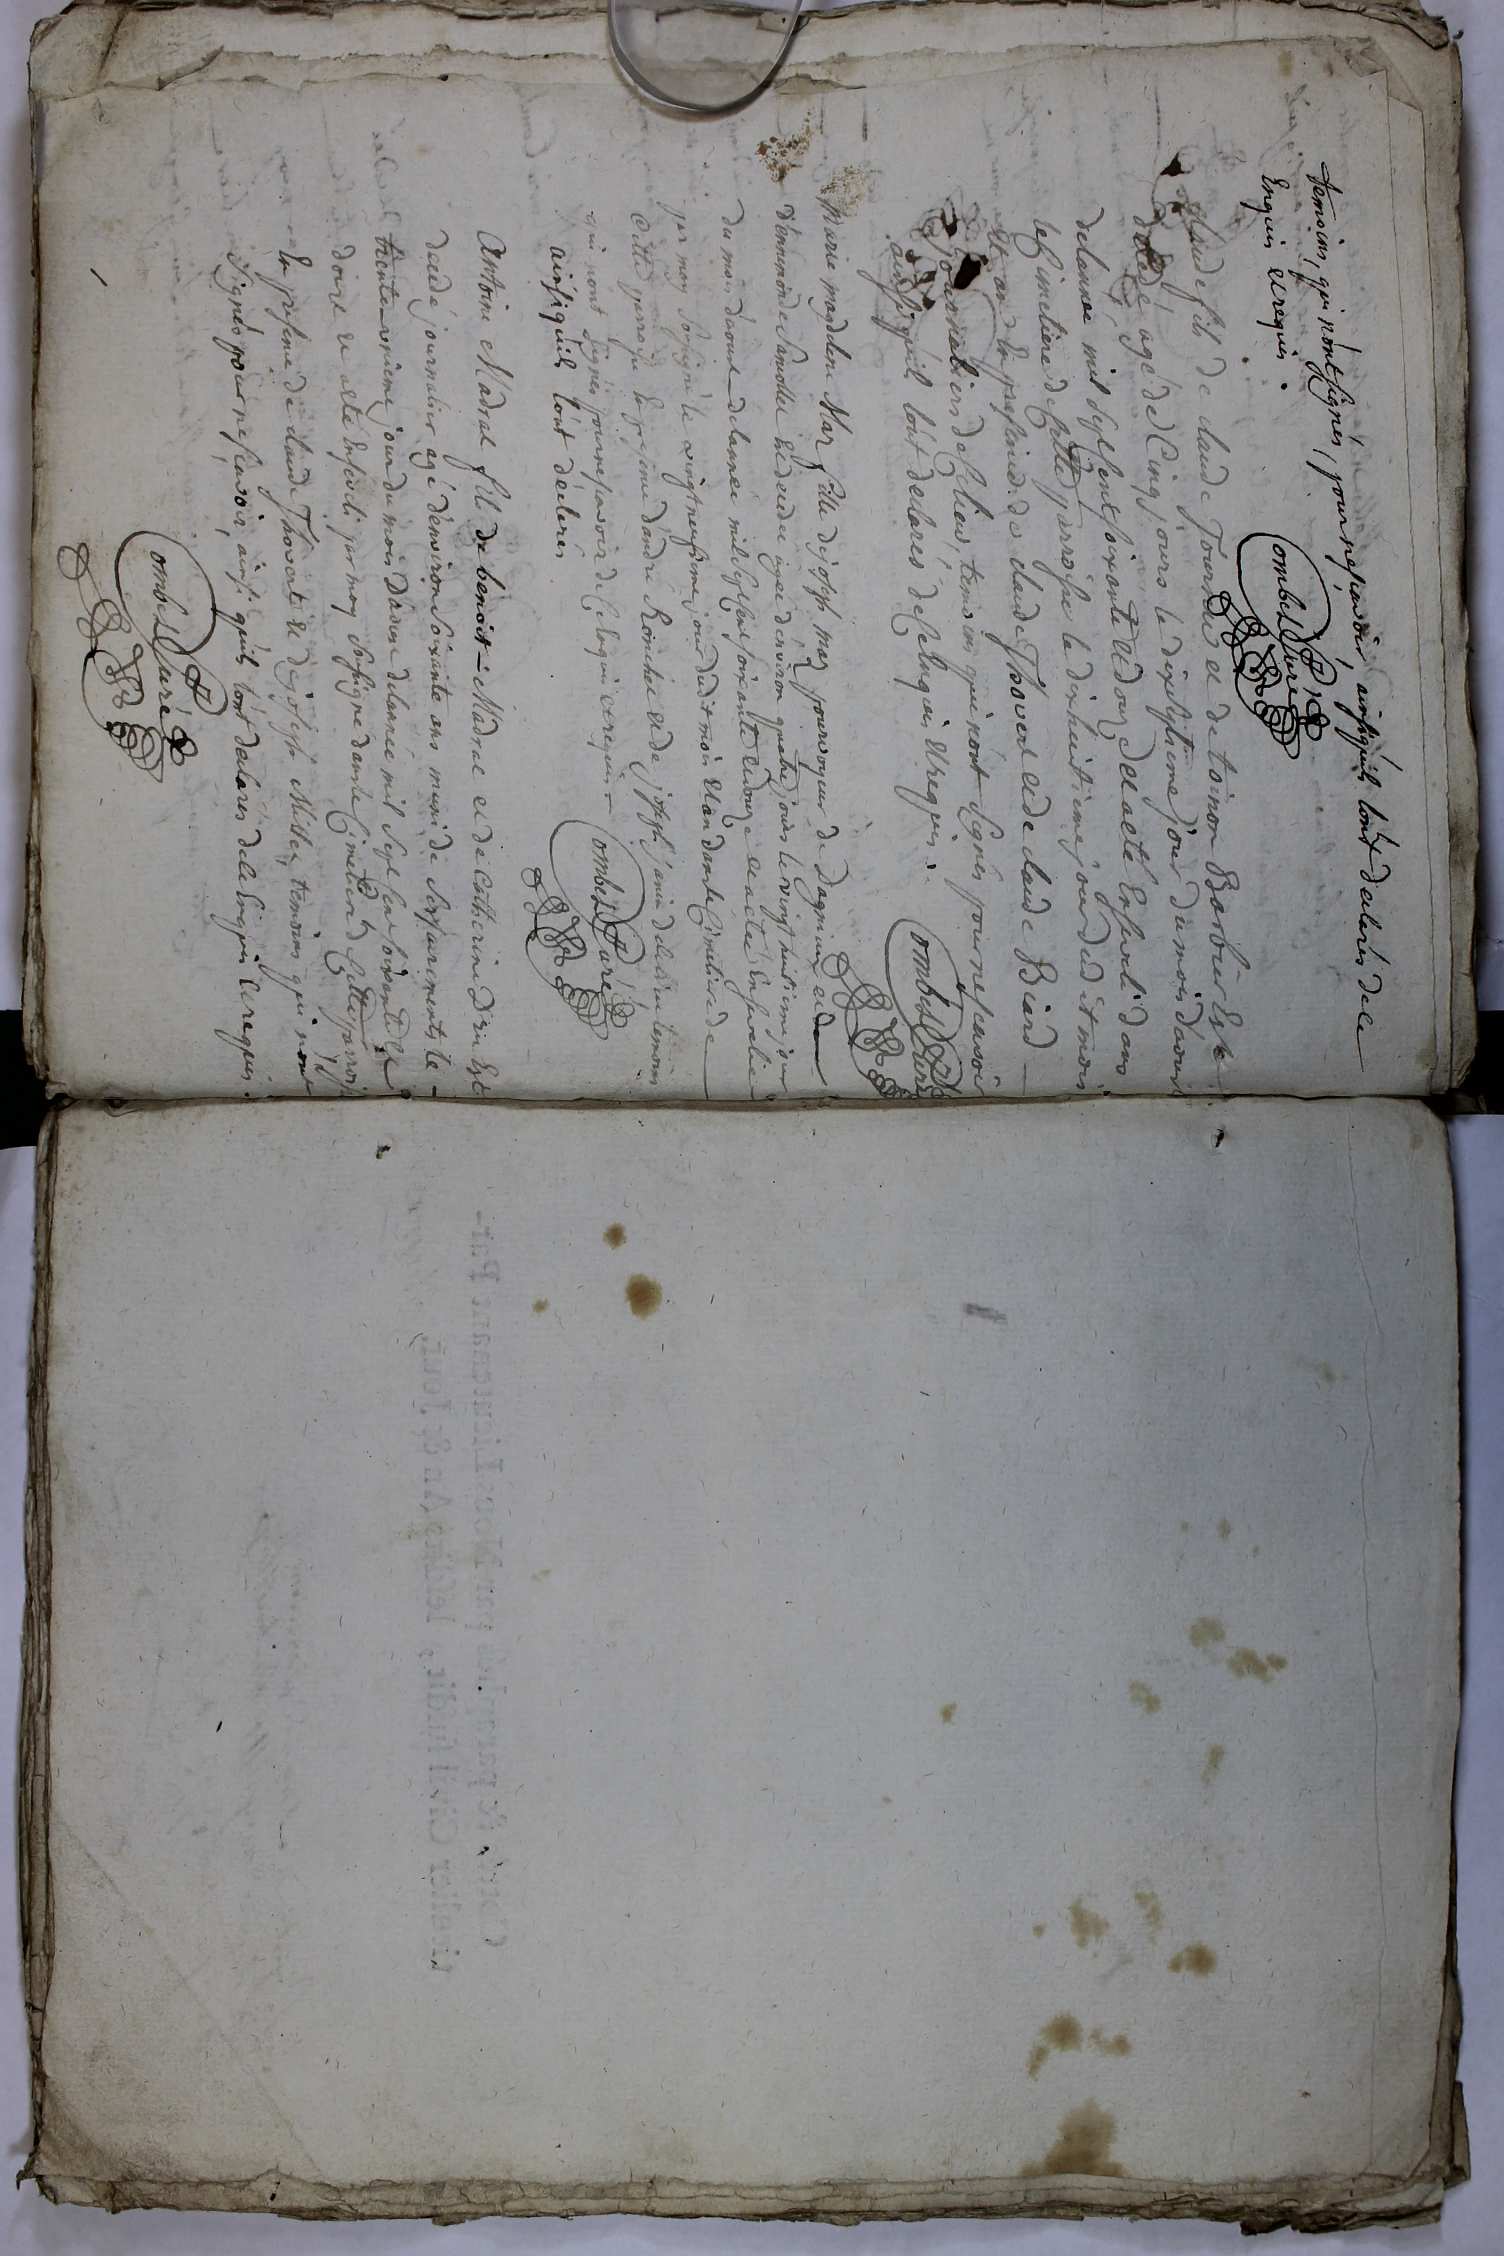 temoins, qui n'ont signés, pour ne scavoir, ainsi quils l'ont declarés de ce
Enquis et requis.
Combet Curé
Claude fils de claude Tournu et de toinon Barbier Est
Decedé agé de Cinq jours le dixseptieme jour du mois d'aoust
de lannee mil sept cent soixante et douze et a eté Enseveli dans
le Cimetiere de Cette parroisse le dixhuitieme jour dudit mois
et an En presence de claude Thovert et de claude Biard
journaliers de Ce lieu, temoins qui n'ont signés pour ne scavoir
ainsi quils l'ont declarés de Ce Enquis et requis.
Combet Curé
Marie magdelene Maz fille de joseph maz pourvoyeur de Dagnieux et de
d'ennemonde est decedée agée d'environ quatre jours le vingt huitieme jour
du mois d'aoust de lannée mil sept cent soixante et douze et a eté Ensevelie
par moy soussigné le vingt neufvieme jour dudit mois et an dans le Cimetiere de
Cette parroisse En presence d'andré Ronchet et de joseph janin de ce lieu temoins
qui n'ont signés pour ne scavoir de Ce Enquis et requis
ainsi quils l'ont déclarés
Combet Curé
Antoine Madral fils de benoit Madral et de Catherine Drin Est
decedé journalier agé d'environ soixante ans muni de ses sacrements le
trente-unieme jour du mois d'aoust de lannée mil sept cent soixante et
douze et a eté Enseveli par moy soussigné dans le Cimetiere de Cette parroisse
En presence de claude Thovert et de joseph Millet, temoins qui n'ont
signés pour ne scavoir, ainsi quils l'ont declarés de ce Enquis et requis.
Combet Curé